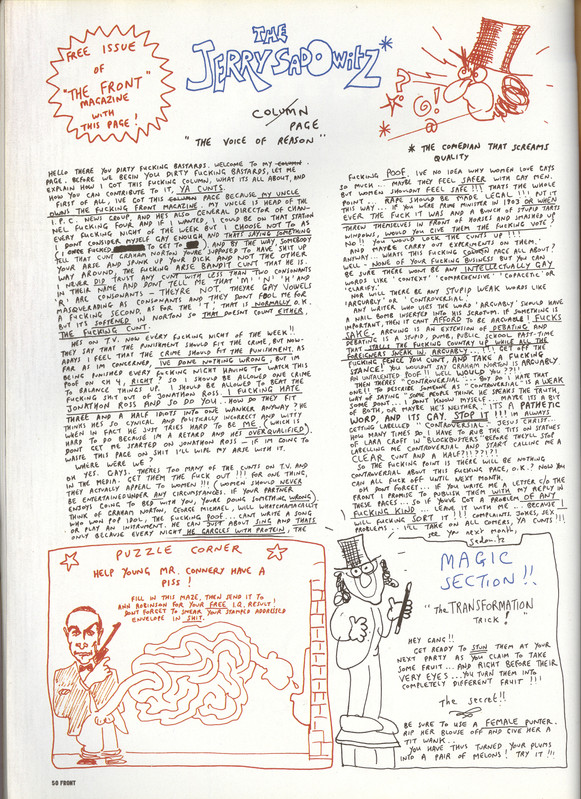 FREE ISSUE
OF
"THE FRONT"
MAGAZINE
WITH
THIS PAGE!
THE
JERRY SADOWITZ*
COLUMN
PAGE
"THE VOICE OF REASON"
* THE COMEDIAN THAT SCREAMS
QUALITY
HELLO THERE YOU DIRTY FUCKING BASTARDS. WELCOME TO MY COLUMN
PAGE. BEFORE WE BEGIN YOU DIRTY FUCKING BASTARDS, LET ME
EXPLAIN HOW I GOT THIS FUCKING COLUMN, WHAT ITS ALL ABOUT, AND
HOW YOU CAN CONTRIBUTE TO IT, YA CUNTS.
FIRST OF ALL, IVE GOT THIS COLUMN PAGE BECAUSE MY UNCLE
OWNS THE FUCKING FRONT MAGAZINE. MY UNCLE IS HEAD OF THE
I.P.C. NEWS GROUP, AND HES ALSO GENERAL DIRECTOR OF CHAN-
NEL FUCKING FOUR AND IF I WANTED, I COULD BE ON THAT STATION
EVERY FUCKING NIGHT OF THE WEEK BUT I CHOOSE NOT TO AS
I DONT CONSIDER MYSELF GAY ENOUGH AND THATS SAYING SOMETHING
(I ONCE FUCKED TO GET TO), AND BY THE WAY, SOMEBODY
TELL THAT CUNT GRAHAM NORTON YOU'RE SUPPOSED TO HAVE SHIT UP
YOUR ARSE AND SPUNK UP YOUR DICK AND NOT THE OTHER
WAY AROUND, THE FUCKING ARSE BANDIT CUNT THAT HE IS.
I NEVER DID TRUST ANY CUNT WITH LESS THAN TWO CONSONANTS
IN THEIR NAME AND DONT TELL ME THAT 'M' 'N' 'H' AND
'R' ARE CONSONANTS - THEY'RE NOT, THEYRE GAY VOWELS
MASQUERADING AS CONSONANTS AND THEY DONT FOOL ME FOR
A FUCKING SECOND. AS FOR THE 'T', THAT IS NORMALLY O.K.
BUT ITS SOFTENED IN NORTON SO THAT DOESNT COUNT EITHER,
THE FUCKING CUNT.
HES ON T.V. NOW EVERY FUCKING NIGHT OF THE WEEK!!
THEY SAY THAT THE PUNISHMENT SHOULD FIT THE CRIME, BUT NOW-
DAYS I FEEL THAT THE CRIME SHOULD FIT THE PUNISHMENT. AS
FAR AS IM CONCERNED, IVE DONE NOTHING WRONG, BUT IM
BEING PUNISHED EVERY FUCKING NIGHT HAVING TO WATCH THIS
POOF ON CH 4, RIGHT? SO I SHOULD BE ALLOWED ONE CRIME
TO BALANCE THINGS UP. I SHOULD BE ALLOWED TO BEAT THE
FUCKING SHIT OUT OF JONATHON ROSS. I FUCKING HATE
JONATHON ROSS AND SO DO YOU.. HOW DO THEY FIT
THREE AND A HALF IDIOTS INTO ONE WANKER ANYWAY? HE
THINKS HES SO CYNICAL AND POLITICALLY INCORRECT AND WITTY
WHEN IN FACT HE JUST TRIES HARD TO BE ME (WHICH IS
HARD TO DO BECAUSE IM A RETARD AND HES OVERQUALIFIED).
DONT GET ME STARTED ON JONATHON ROSS - IF IM GOING TO
WASTE THIS PAGE ON SHIT I'LL WIPE MY ARSE WITH IT.
WHERE WERE WE?
OH YES. GAYS. THERES TOO MANY OF THE CUNTS ON T.V. AND
IN THE MEDIA. GET THEM THE FUCK OUT!! FOR ONE THING,
THEY ACTUALLY APPEAL TO WOMEN!!! (WOMEN SHOULD NEVER
BE ENTERTAINED UNDER ANY CIRCUMSTANCES. IF YOUR PARTNER
ENJOYS GOING TO BED WITH YOU, YOURE DOING SOMETHING WRONG)
THINK OF GRAHAM NORTON, GEORGE MICHAEL, WILL WHATCHAMACALLIT
WHO WON POP IDOL, THE FUCKING POOF... CANT WRITE A SONG
OR PLAY AN INSTRUMENT. HE CAN JUST ABOUT SING AND THATS
ONLY BECAUSE EVERY NIGHT HE GARGLES WITH PROTEIN, THE
FUCKING POOF. IVE NO IDEA WHY WOMEN LOVE GAYS
SO MUCH... MAYBE THEY FEEL SAFER WITH GAY MEN.
BUT WOMEN SHOULDNT FEEL SAFE!!! THATS THE WHOLE
POINT... RAPE SHOULD BE MADE LEGAL!!! PUT IT
THIS WAY... IF YOU WERE PRIME MINISTER IN 1903 OR WHEN
EVER THE FUCK IT WAS AND A BUNCH OF STUPID TARTS
THREW THEMSELVES IN FRONT OF HORSES AND SMASHED UP
WINDOWS, WOULD YOU GIVE THEM THE FUCKING VOTE?
NO!! YOU WOULD LOCK THE CUNTS UP!!!
AND MAYBE CARRY OUT EXPERIMENTS ON THEM.
ANYWAY.. WHATS THIS FUCKING COLUMN PAGE ALL ABOUT?
WELL.. NONE OF YOUR FUCKING BUSINESS BUT YOU CAN
BE SURE THERE WONT BE ANY INTELLECTUALLY GAY
WORDS LIKE 'CONTEXT' 'COMPREHENSIVE' 'COPACETIC' OR
'CLARIFY'.
NOR WILL THERE BE ANY STUPID WEAK WORDS LIKE
'ARGUABLY' OR 'CONTROVERSIAL'.
ANY WRITER WHO USES THE WORD 'ARGUABLY' SHOULD HAVE
A NAIL BOMB INSERTED INTO HIS SCROTUM. IF SOMETHING IS
IMPORTANT, THEN IT CANT AFFORD TO BE ARGUABLE! FUCKS
SAKE. ARGUING IS AN EXTENSION OF DEBATING AND
DEBATING IS A STUPID, DUMB, PUBLIC SCHOOL PAST-TIME
THAT STALLS THE FUCKING COUNTRY UP WHILE ALL THE
FOREIGNERS SNEAK IN. ARGUABLY...!!! GET OFF THE
FUCKING FENCE YOU CUNT, AND TAKE A FUCKING
STANCE! YOU WOULDNT SAY GRAHAM NORTON IS ARGUABLY
AN UNTALENTED POOF!! WELL WOULD YOU??!!
THEN THERES "CONTROVERSIAL".... BOY DO I HATE THAT
ONE!! TO DESCRIBE SOMEONE AS "CONTROVERSIAL" IS A WEAK
WAY OF SAYING "SOME PEOPLE THINK HE SPEAKS THE TRUTH,
SOME DONT... I DONT KNOW MYSELF... MAYBE ITS A BIT
OF BOTH, OR MAYBE HE'S NEITHER." ITS A PATHETIC
WORD, AND ITS GAY. STOP IT!!! IM ALWAYS
GETTING LABELLED "CONTROVERSIAL". JESUS CHRIST!
HOW MANY TIMES DO I HAVE TO RUB THE TITS ON STATUES
OF LARA CROFT IN "BLOCKBUSTERS" BEFORE THEY'LL STOP
LABELLING ME CONTROVERSIAL AND START CALLING ME A
CLEAR CUNT AND A HALF?!!???!!?!
SO THE FUCKING POINT IS THERE WILL BE NOTHING
CONTROVERSIAL ABOUT THIS FUCKING PAGE, O.K.? NOW YOU
CAN ALL FUCK OFF UNTIL NEXT MONTH.
OH DONT FORGET... IF YOU WRITE ME A LETTER C/O THE
FRONT I PROMISE TO PUBLISH THEM WITH MY REPLY IN
THESE PAGES... SO IF YOU'VE GOT A PROBLEM OF ANY
FUCKING KIND... LEAVE IT WITH ME... BECAUSE I
WILL FUCKING SORT IT!!! COMPLAINTS, JOKES, SEX
PROBLEMS.. I'LL TAKE ON ALL COMERS, YA CUNTS!!!
see you next month,
Sadowitz
PUZZLE CORNER
HELP YOUNG MR. CONNERY HAVE A
PISS!
FILL IN THIS MAZE, THEN SEND IT TO
ANN ROBINSON FOR YOUR FREE I.Q. RESULT!
DONT FORGET TO SMEAR YOUR STAMPED ADDRESSED
ENVELOPE IN SHIT.
MAGIC
SECTION!!
"THE TRANSFORMATION
TRICK!"
HEY GANG!!
GET READY TO STUN THEM AT YOUR
NEXT PARTY AS YOU CLAIM TO TAKE
SOME FRUIT... AND RIGHT BEFORE THEIR
VERY EYES... YOU TURN THEM INTO
COMPLETELY DIFFERENT FRUIT!!!
the secret!!
BE SURE TO USE A FEMALE PUNTER.
RIP HER BLOUSE OFF AND GIVE HER A
TIT WANK..
YOU HAVE THUS TURNED YOUR PLUMS
INTO A PAIR OF MELONS! TRY IT!!!
50 FRONT